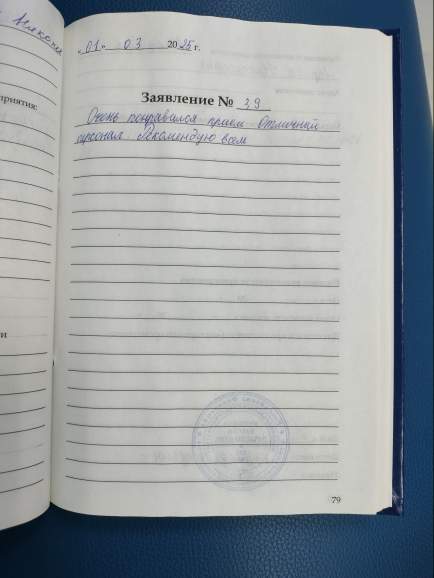 « 01 » 03 2025 г.
Заявление № 39
Очень понравился прием Отличный
персонал Рекомендую всем
приятия:
и
79